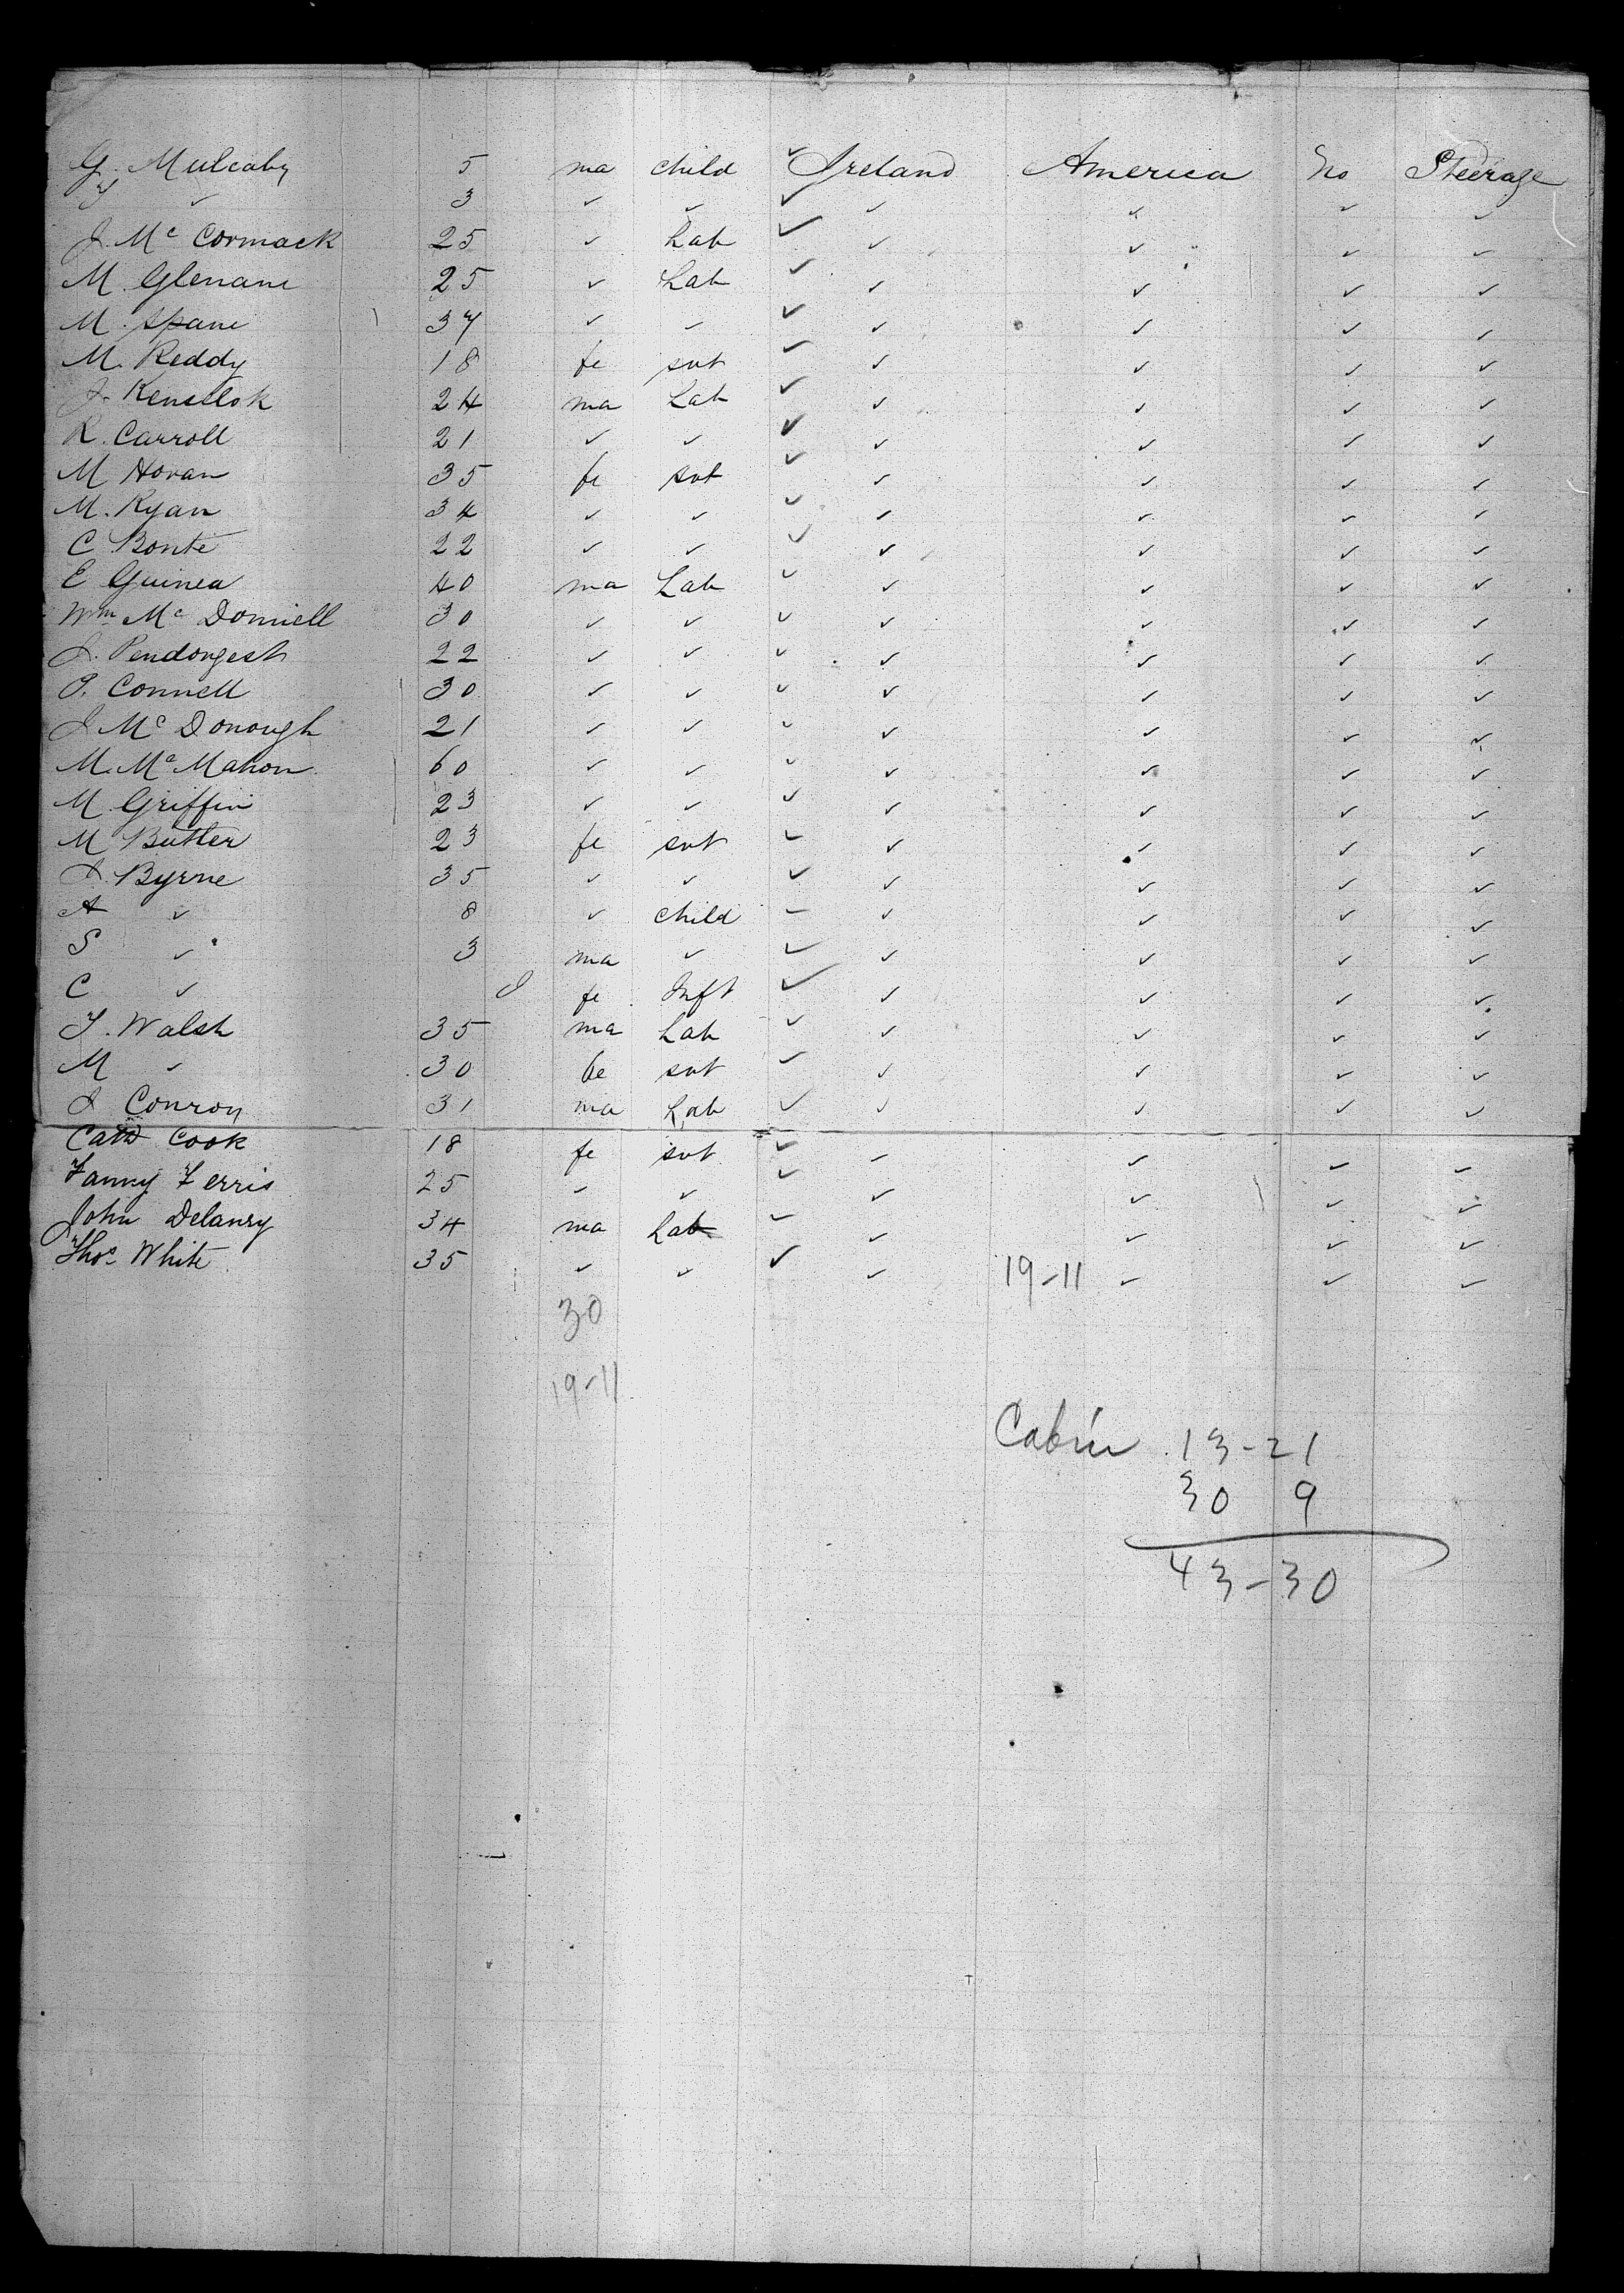 G. Mulcahy 5 ma child ✓ Ireland America No Steerage
T ✓ 3 ✓ ✓ ✓ ✓ ✓ ✓ ✓
J. Mc Cormack 25 ✓ Lab ✓ ✓ ✓ ✓ ✓
M. Glenane 25 ✓ Lab ✓ ✓ ✓ ✓ ✓
M. Spane 37 ✓ ✓ ✓ ✓ ✓ ✓ ✓
M. Reddy 18 fe svt ✓ ✓ ✓ ✓ ✓
J. 24 ma Lab ✓ ✓ ✓ ✓ ✓
R. Carroll 21 ✓ ✓ ✓ ✓ ✓ ✓ ✓
M Horan 35 fe svt ✓ ✓ ✓ ✓ ✓
M. Ryan 34 ✓ ✓ ✓ ✓ ✓ ✓ ✓
C Bonte 22 ✓ ✓ ✓ ✓ ✓ ✓ ✓
E Guinea 40 ma Lab ✓ ✓ ✓ ✓ ✓
Wm Mc Donnell 30 ✓ ✓ ✓ ✓ ✓ ✓ ✓
J. Pendorgest 22 ✓ ✓ ✓ ✓ ✓ ✓ ✓
P. Connell 30 ✓ ✓ ✓ ✓ ✓ ✓ ✓
J Mc Donough 21 ✓ ✓ ✓ ✓ ✓ ✓ ✓
M. Mc Mahon 60 ✓ ✓ ✓ ✓ ✓ ✓ ✓
M Griffin 23 ✓ ✓ ✓ ✓ ✓ ✓ ✓
M Butler 23 fe svt ✓ ✓ ✓ ✓ ✓
J. Byrne 35 ✓ ✓ ✓ ✓ ✓ ✓ ✓
A ✓ 8 ✓ child ✓ ✓ ✓ ✓ ✓
S ✓ 3 ma ✓ ✓ ✓ ✓ ✓ ✓
C ✓ fe Inft ✓ ✓ ✓ ✓ ✓
T. Walsh 35 ma Lab ✓ ✓ ✓ ✓ ✓
M ✓ 30 fe svt ✓ ✓ ✓ ✓ ✓
J Conron 31 ma Lab ✓ ✓ ✓ ✓ ✓
Cath Cook 18 fe svt ✓ ✓ ✓ ✓ ✓
Fanny Ferris 25 ✓ ✓ ✓ ✓ ✓ ✓ ✓
John Delaney 34 ma Lab ✓ ✓ ✓ ✓ ✓
Thos White 35 ✓ ✓ ✓ ✓ 19-11 ✓ ✓ ✓
30
19-11
Cabin 13-21
30 9
43-30